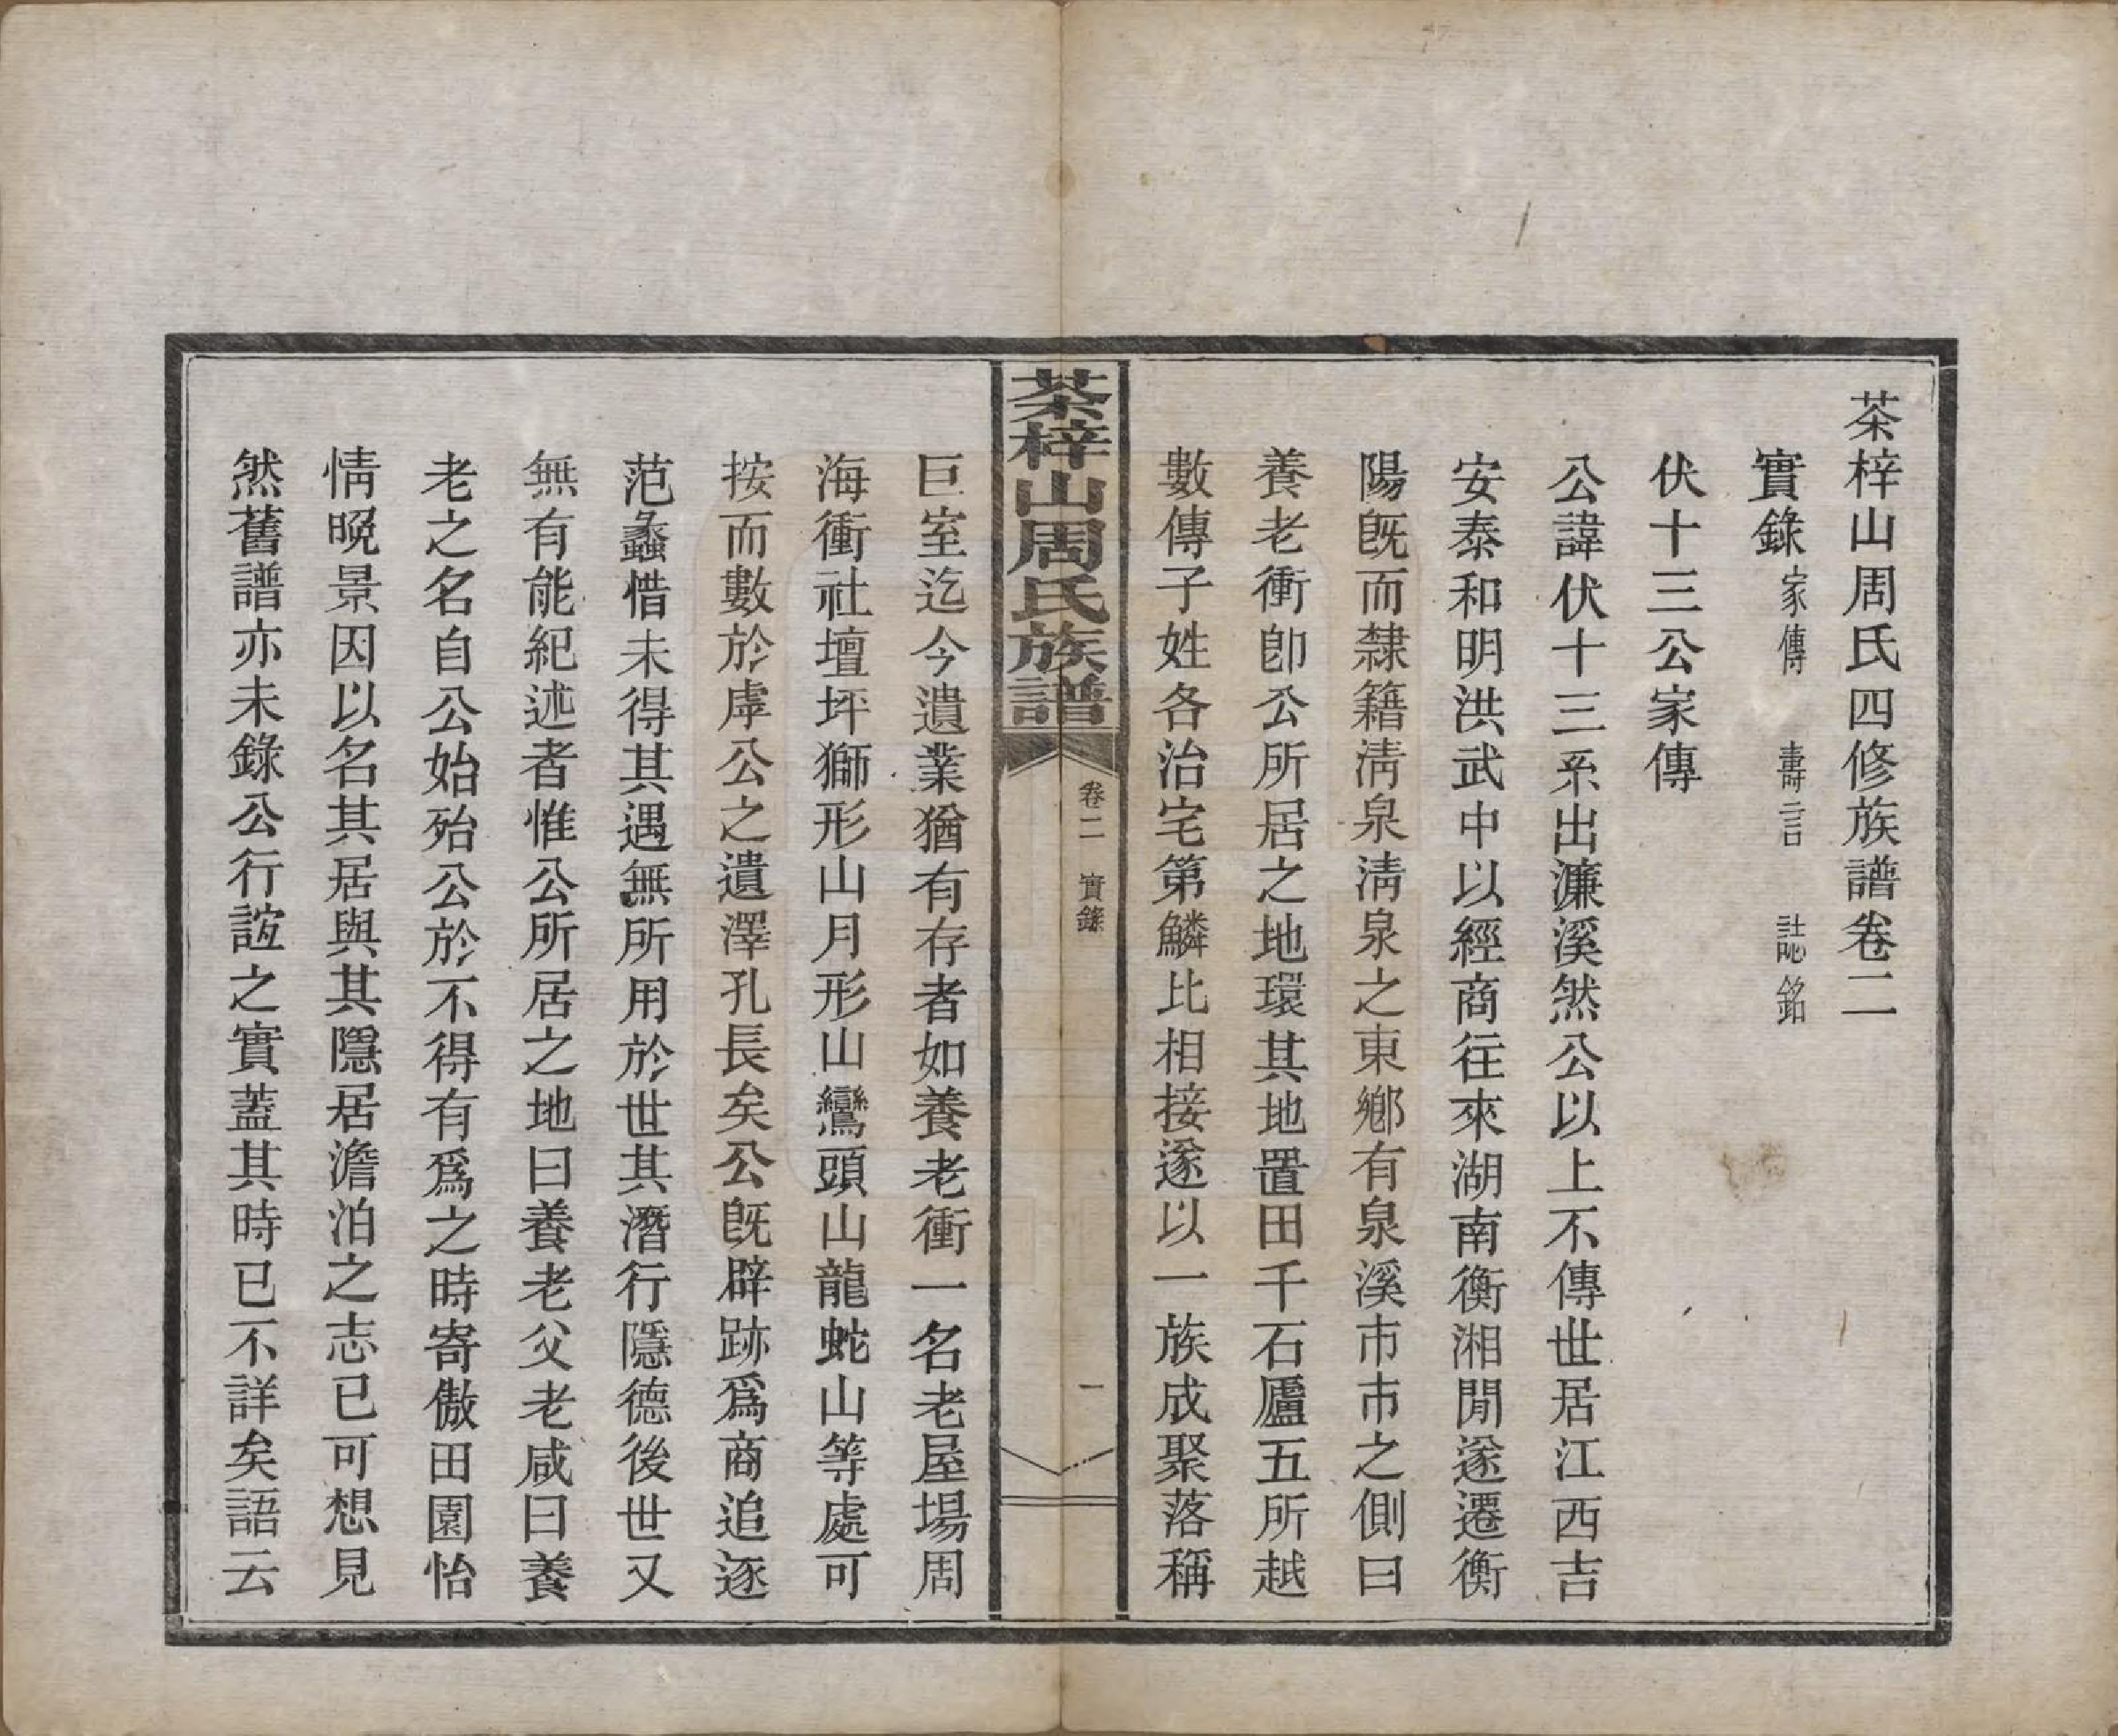 茶梓山周氏四修族譜卷二
實錄 家傳 壽言 誌銘
伏十三公家傳
公諱伏十三系出濂溪然公以上不傳世居江西吉
安泰和明洪武中以經商徃來湖南衡湘閒遂遷衡
陽旣而隸籍淸泉淸泉之東鄕有泉溪市市之側曰
養老衝卽公所居之地環其地置田千石廬五所越
數傳子姓各治宅第鱗比相接遂以一族成聚落稱
茶梓山周氏族譜
卷二 實錄
一
巨室迄今遺業猶有存者如養老衝一名老屋場周
海衝社壇坪獅形山月形山鸞頭山龍蛇山等處可
按而數於虖公之遺澤孔長矣公旣辟跡爲商追逐
范蠡惜未得其遇無所用於世其潛行隱德後世又
無有能紀述者惟公所居之地曰養老父老咸曰養
老之名自公始殆公於不得有爲之時寄傲田園怡
情晚景因以名其居與其隱居澹泊之志已可想見
然舊譜亦未錄公行誼之實蓋其時已不詳矣語云